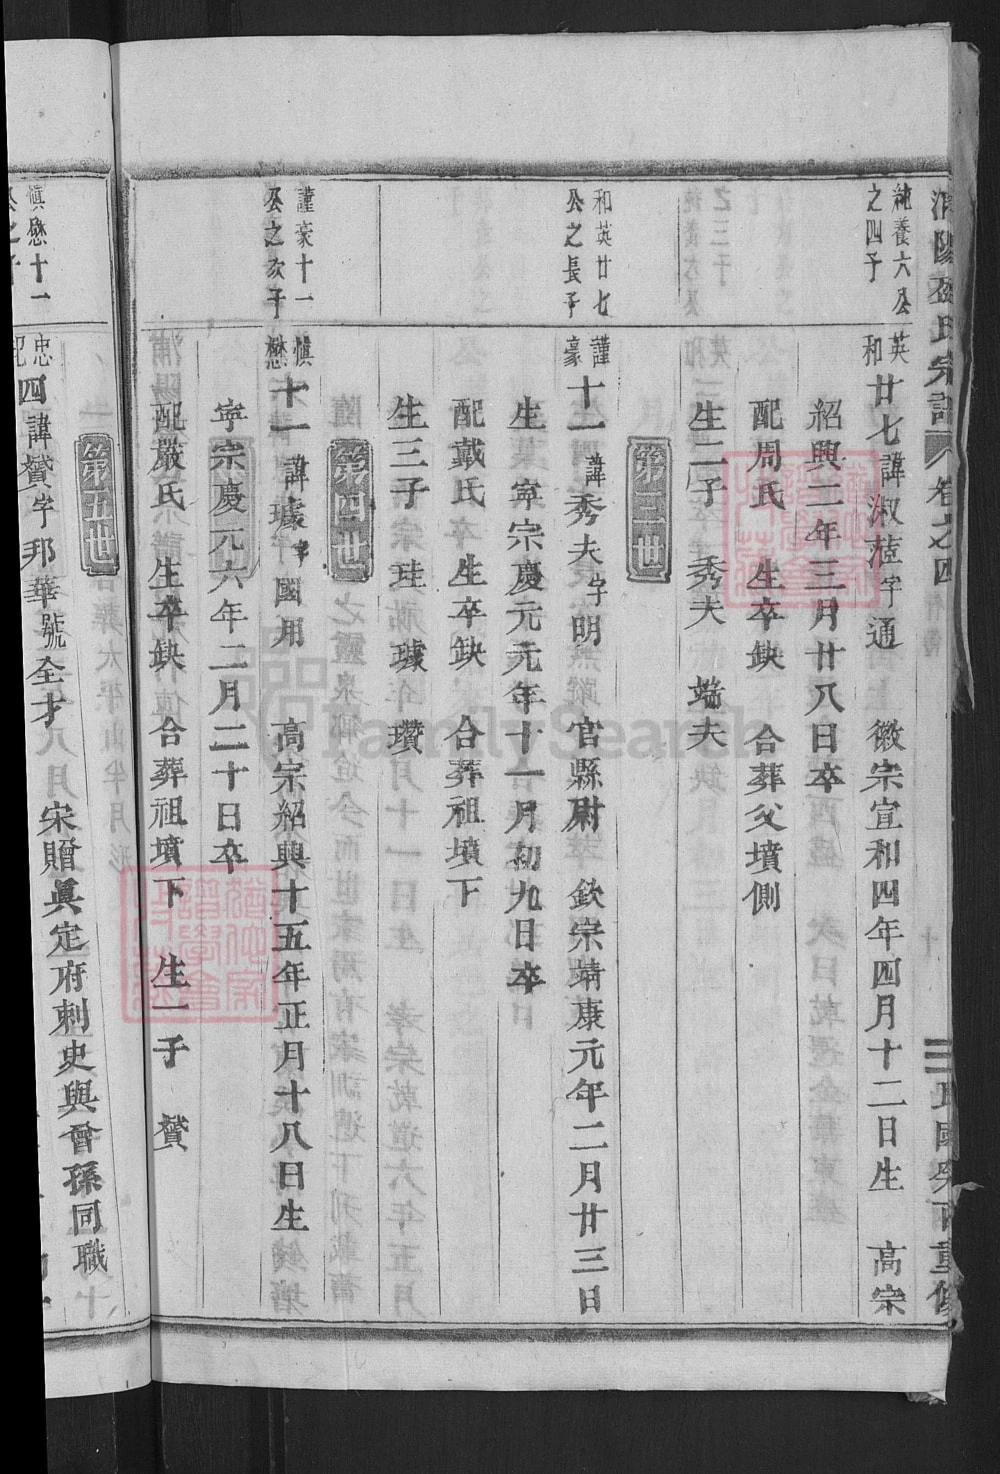 純養六公
之四子
英
和
廿七諱淑𦳝字通　徽宗宣和四年四月十二日生　高宗
紹興二年三月廿八日卒
配周氏　生卒缺　合葬父墳側
生二子　秀夫　端夫
第三世
和英廿七
公之長子
謹
豪
十一諱秀夫字明　官縣尉　欽宗靖康元年二月廿三日
生　寧宗慶元元年十一月初九日卒
配戴氏　生卒缺　合葬祖墳下
生三子　珪　璩　瓚
第四世
謹豪十一
公之次子
慎
懋
十一諱璩字國用　高宗紹興十五年正月十八日生
寧宗慶元六年二月二十日卒
配嚴氏　生卒缺　合葬祖墳下　生一子　贇
第五世
慎懋十一
公之子
忠
四諱贇字邦華號全才　宋贈真定府刺史與曾孫同職
卷之四
民國
重修
FamilySearch